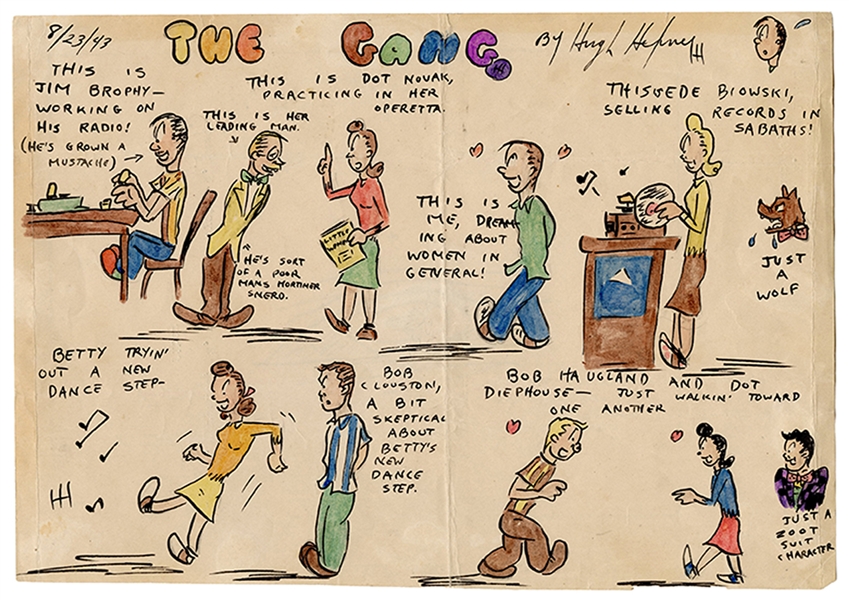 8/23/43
THE GANG
BY Hugh Hefner HH
THIS IS
JIM BROPHY—
WORKING ON
HIS RADIO!
(HE'S GROWN A
MUSTACHE)
THIS IS DOT NOVAK,
PRACTICING IN HER
OPERETTA.
THIS IS HER
LEADING MAN.
HE'S SORT
OF A POOR
MANS MORTIMER
SNERD.
LITTLE
THIS IS
ME, DREAM-
ING ABOUT
WOMEN IN
GENERAL!
THIS
BIOWSKI,
SELLING RECORDS IN
SABATHS!
JUST
A
WOLF
BETTY TRYIN'
OUT A NEW
DANCE STEP-
HH
BOB
CLOUSTON,
A BIT
SKEPTICAL
ABOUT
BETTY'S
NEW
DANCE
STEP.
BOB HAUGLAND AND DOT
DIEPHOUSE— JUST WALKIN' TOWARD
ONE ANOTHER
JUST A
ZOOT
SUIT
CHARACTER